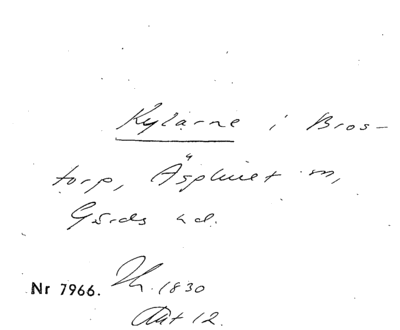 Kylarne i Bros-
torp, Äsphult sn,
Gärds hd.
Nr 7966. Th. 1830
Akt 12.